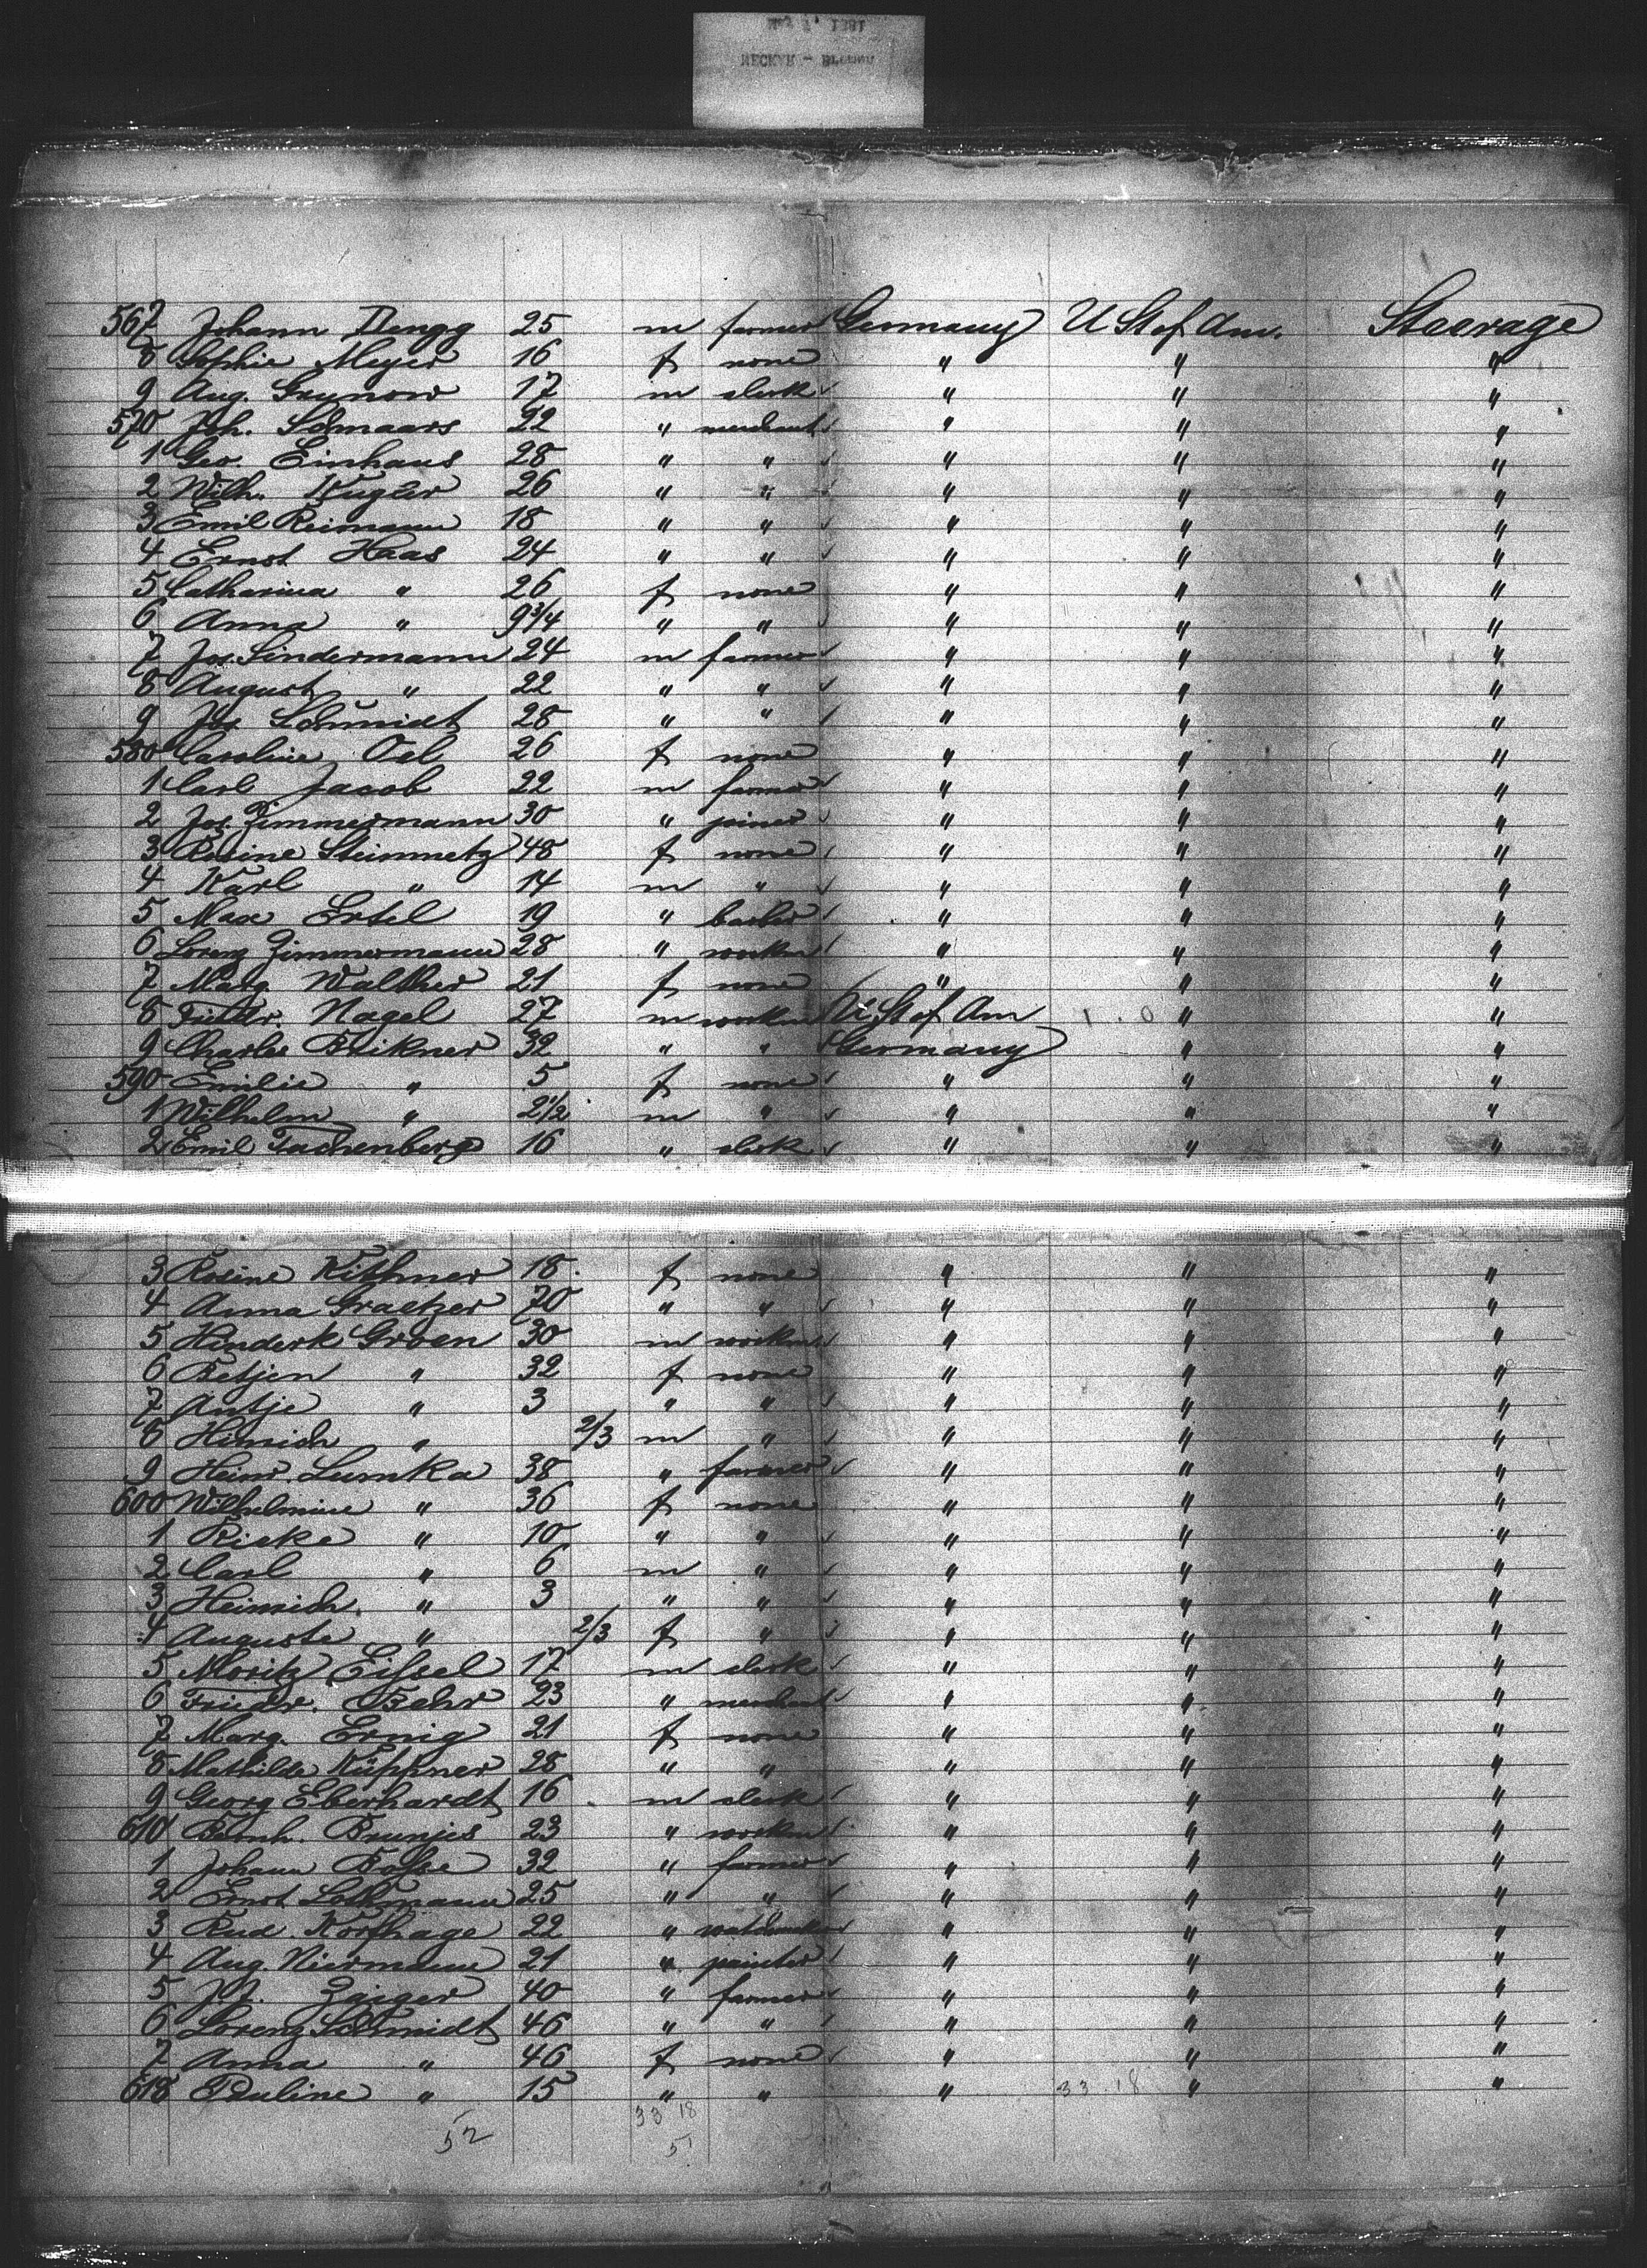 May 7, 1881
NECKAR - Bremen
567 Johann Dengg 25 m farmer Germany U St of Am. Steerage
8 Sophie Meyer 16 f none " " "
9 Aug. Grunow 17 m clerk " " "
570 Joh. Schnaars 22 " merchant " " "
1 Geo. Einhaus 28 " " " " "
2 Wilh. Kugler 26 " " " " "
3 Emil Reimann 18 " " " " "
4 Ernst Haas 24 " " " " "
5 Catharina " 26 f none " " "
6 Anna " 9 3/4 " " " " "
7 Jos. Lindermann 24 m farmer " " "
8 August " 22 " " " " "
9 Jos Schmidt 28 " " " " "
580 Caroline Oel 26 f none " " "
1 Carl Jacob 22 m farmer " " "
2 Jos. Zimmermann 30 " joiner " " "
3 Rosine Steinmetz 48 f none " " "
4 Karl " 14 m " " " "
5 Max Ertel 19 " barber " " "
6 Lorenz Zimmermann 28 " workm " " "
7 Marg. Walther 21 f none " " "
8 Friedr. Nagel 27 m workm U St of Am " "
9 Charles Brikner 32 " " Germany " "
590 Emilie " 5 f none " " "
1 Wilhelm " 2 1/2 m " " " "
2 Emil Tachenberg 16 " clerk " " "
3 Rosine Kithner 18 f none " " "
4 Anna Graetzer 70 " " " " "
5 Hinderk Groen 30 m workm " " "
6 Betjen " 32 f none " " "
7 Antje " 3 " " " " "
8 Hinrich " 2/3 m " " " "
9 Heinr. Lumka 38 " farmer " " "
600 Wilhelmine " 36 f none " " "
1 Rieke " 10 " " " " "
2 Carl " 6 m " " " "
3 Heinrich " 3 " " " " "
4 Auguste " 2/3 f " " " "
5 Moritz Eissel 17 m clerk " " "
6 Friedr. Behr 23 " merchant " " "
7 Marg. Ernig 21 f none " " "
8 Mathilde Küppner 28 " " " " "
9 Georg Eberhardt 16 m clerk " " "
610 Bernh. Brunjes 23 " workm " " "
1 Johann Bosse 32 " farmer " " "
2 Ernst 25 " " " " "
3 Rud. Korfhage 22 " watchmaker " " "
4 Aug. Niermann 21 " painter " " "
5 Zaiger 40 " farmer " " "
6 Lorenz Schmidt 46 " " " " "
7 Anna " 46 f none " " "
618 Pauline " 15 " " " 33.18 " "
33 18
52 51